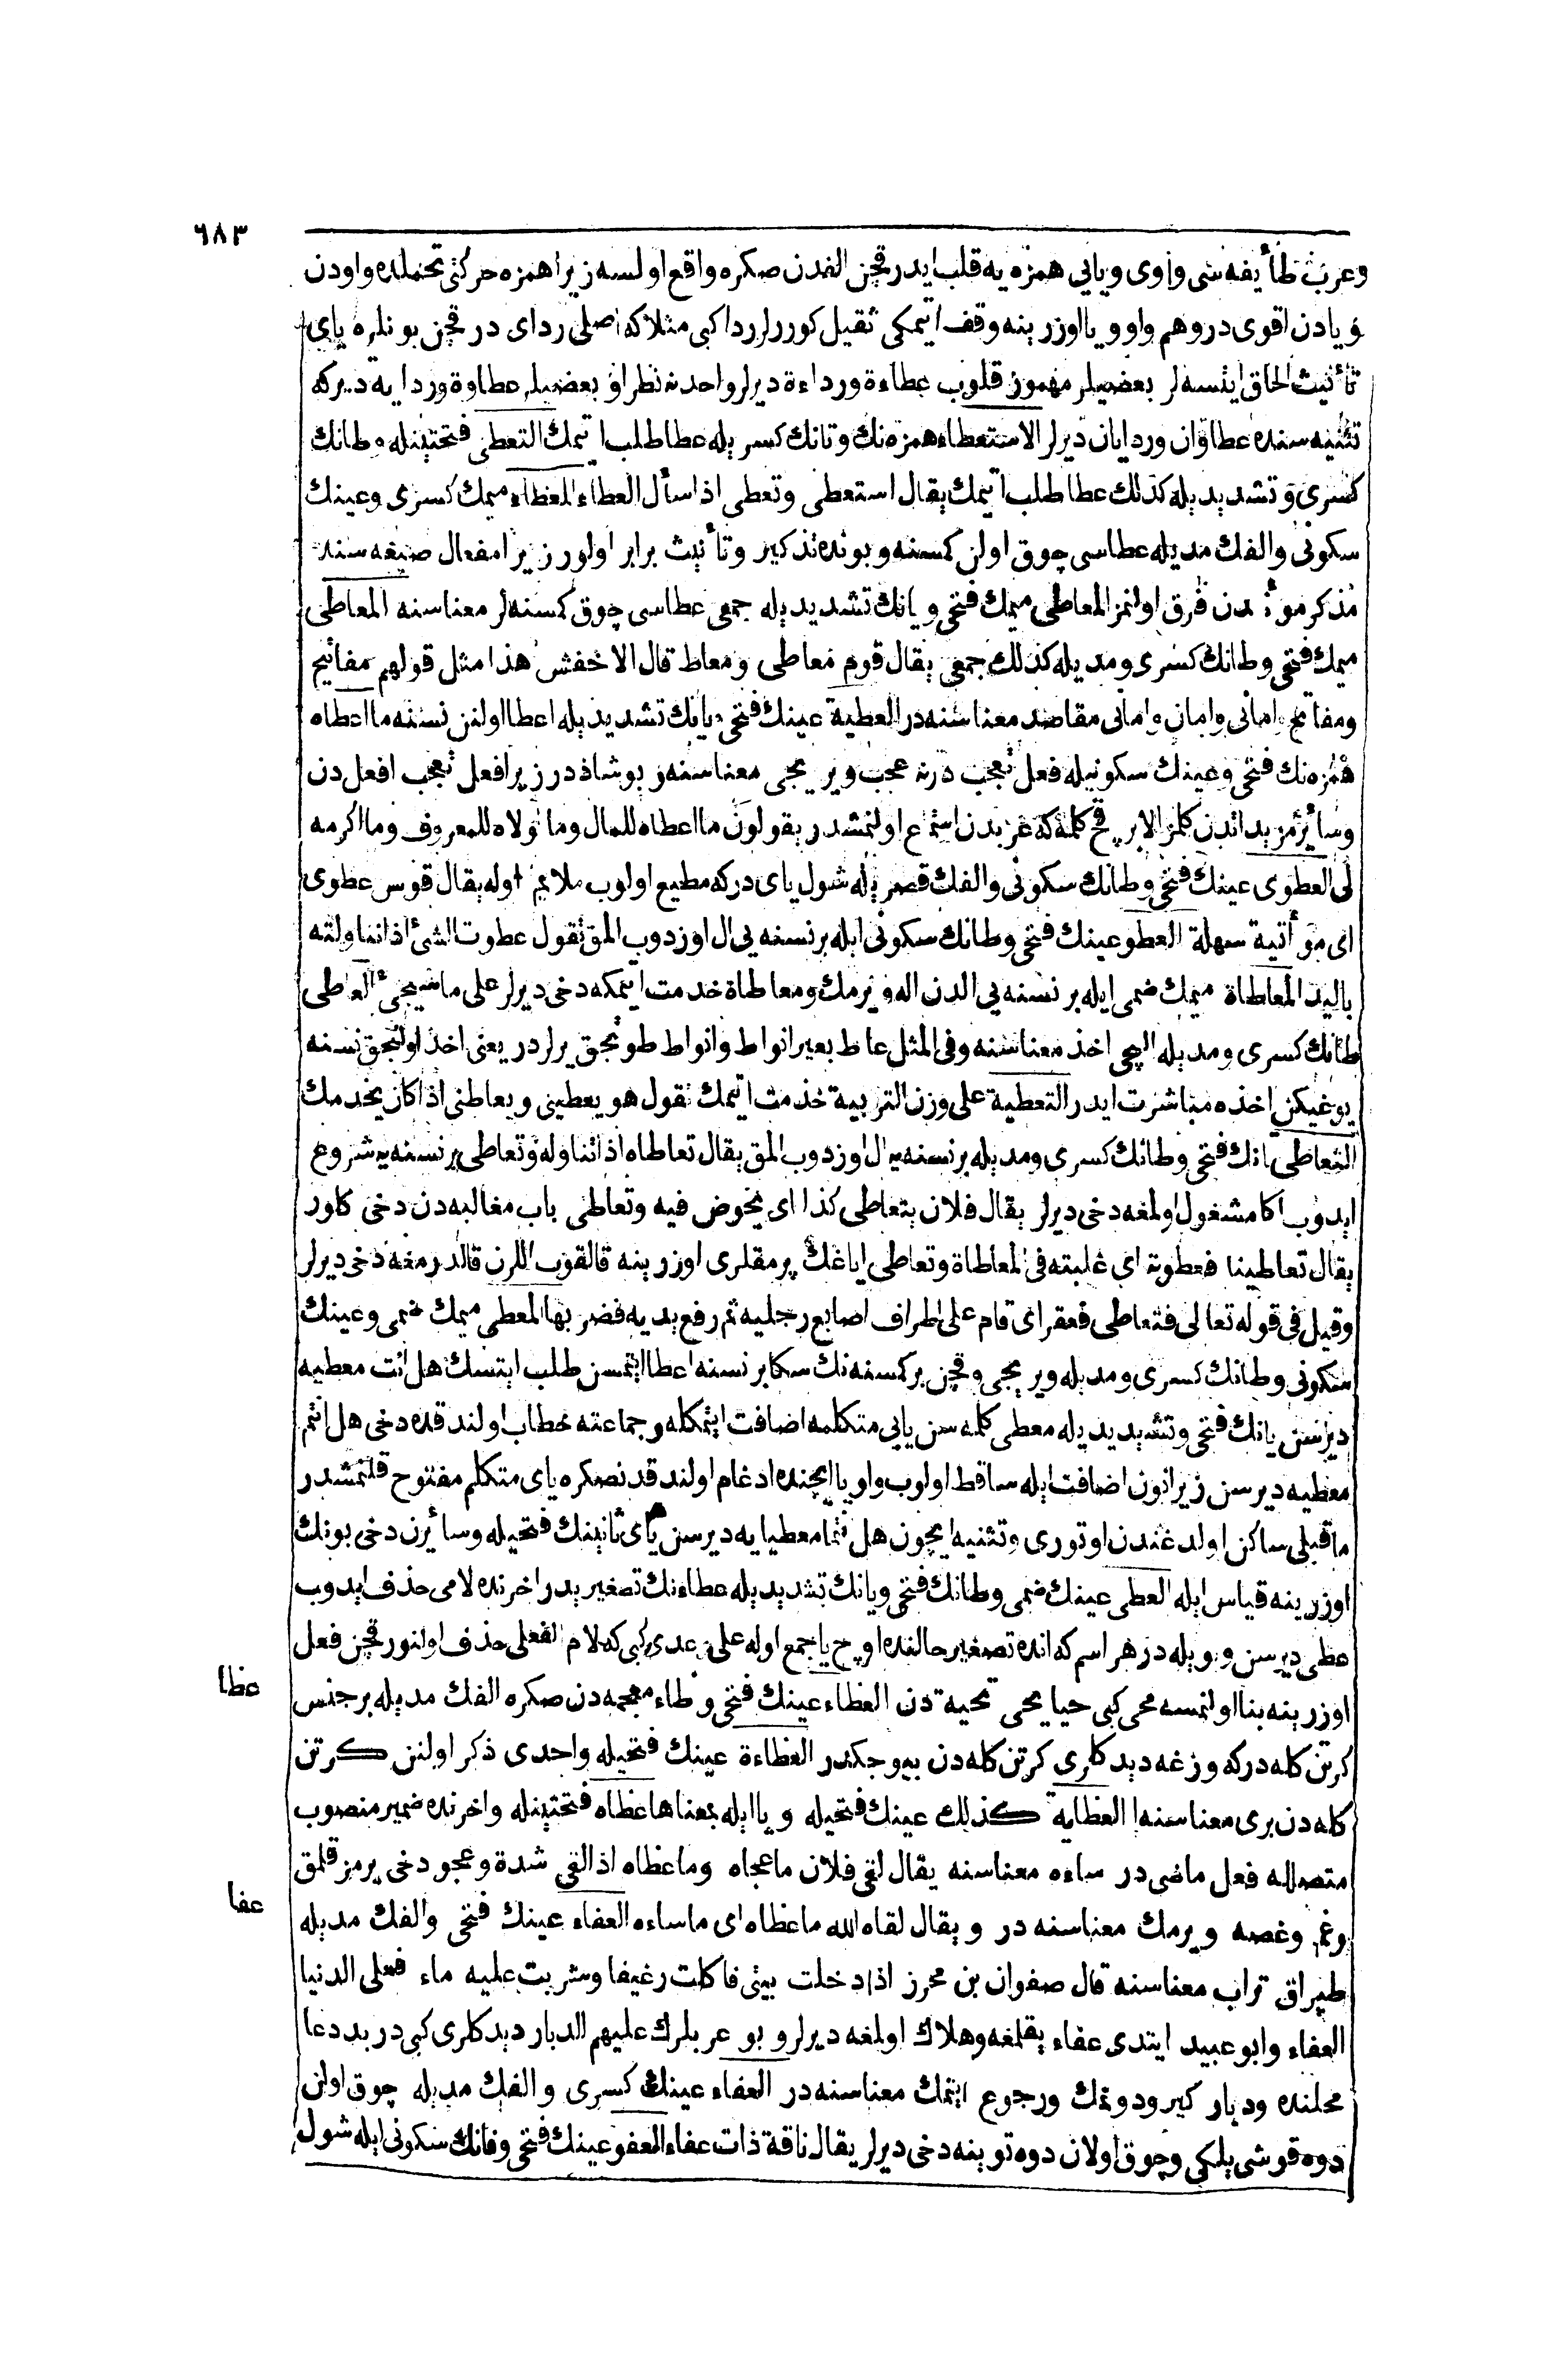 ٦٨٣
وعرب طأيفه سی واوی ویایی همزه یه قلب ایدر قچن الفدن صکره واقع اولسه زیرا همزه حرکتی تحملده واودن
و یادن اقوی درو هم واو و یا اوزرینه وقف اتیمکی ثقیل کوررلر ردا کبی مثلا که اصلی ردای در قچن بونلره یای
تأنیث الحاق ایتسه لر بعضیلر مهموز قلوب عطاءة ورداءة دیرلر واحدنه نظرا و بعضیلر عطاوة وردایه دیرکه
تثنیه سنده عطاوان وردایان دیرلر الاستعطاء همزه نك وتانك کسریله عطا طلب ایتمك التعطی فتحتینله وطانك
کسری و تشدیدیله کذلك عطا طلب اتیمك یقال استعطی وتعطی اذا سأل العطاء المعطاء میمك کسری وعینك
سکونی والفك مدیله عطاسی چوق اولن کمسنه و بونده تذکیر وتأنیث برابر اولور زیرا مفعال صیغه سنده
مذکر مو دن فرق اولنمز المعاطی میمك فتحی ویانك تشدیدیله جمعی عطاسی چوق کمسنه لر معناسنه المعاطی
میمك فتحی وطانك کسری ومدیله کذلك جمعی یقال قوم معاطی ومعاط قال الاخفش هذا مثل قولهم مفاتیح
ومفاتح وامانی وامان وامانی مقاصد معناسنه در العطیة عینك فتحی ویانك تشدیدیله اعطا اولنن نسنه ما اعطاه
همزه نك فتحی وعینك سکونیله فعل تعجب درنه عجب ویریجی معناسنه و بوشاذدر زیرا فعل تعجب افعل دن
وسائر مزیداتدن کلمز الا برقچ کلمه که عربدن استماع اولنمشدر یقولون ما اعطاه للمال وما اولاه للمعروف وما اکرمه
لی العطوی عینك فتحی وطانك سکونی والفك قصریله شول یای درکه مطیع اولوب ملایم اوله یقال قوس عطوی
ای مؤاتیة سهلة العطو عینك فتحی وطانك سکونی ایله برنسنه یی ال اوزدوب المق تقول عطوت الشئ اذا تناولته
بالید المعاطاة میمك ضمی ایله برنسنه یی الدن اله ویرمك ومعاطاة خدمت ایتمکه دخی دیرلر علی ماسیجئ العاطی
طانك کسری ومدیله الیجی اخذ معناسنه وفی المثل عاط بغیر انواط وانواط طوتیجق یرلردر یعنی اخذ اولنیجق نسنه
یوغیکن اخذه مباشرت ایدر التعطیة علی وزن التربیة خدمت اتیمك تقول هو یعطینی ویعاطنی اذا کان یخدمك
التعاطی تانك فتحی وطانك کسری ومدیله برنسنه یه ال اوزدوب المق یقال تعاطاه اذا تناوله وتعاطی برنسنه یه شروع
ایدوب اکا مشغول اولمغه دخی دیرلر یقال فلان یتعاطی کذا ای یخوض فیه وتعاطی باب مغالبه دن دخی کلور
یقال تعاطینا فعطوته ای غلبته فی المعاطاة وتعاطی ایاغك پرمقلری اوزرینه قالقوب اللرن قالدرمغه دخی دیرلر
وقیل فی قوله تعالی فتعاطی فعقر ای قام علی اطراف اصابع رجلیه ثم رفع یدیه فضربها المعطی میمك ضمی وعینك
سکونی وطانك کسری ومدیله ویریجی وقچن برکمسنه نك سکا برنسنه اعطا ایتمسن طلب ایتسك هل انت معطیه
دیرسن یانك فتحی وتشدیدیله معطی کلمه سن یایی متکلمه اضافت ایتمکله وجماعته خطاب اولندقده دخی هل انتم
معطیه دیرسن زیرا نون اضافت ایله ساقط اولوب واو یا ایچنده ادغام اولندقدنصکره یای متکلم مفتوح قلنمشدر
ماقبلی ساکن اولدغندن اوتوری وتثنیه ایچون هل انتما معطیایه دیرسن یای ثانینك فتحیله وسائرن دخی بونك
اوزرینه قیاس ایله العطی عینك ضمی وطانك فتحی ویانك تشدیدیله عطاءنك تصغیریدر اخرنده لامی حذف ایدوب
عطی دیرسن وبویله در هر اسم که انده تصغیر حالنده اوچ یا جمع اوله علی وعدی کبی که لام الفعلی حذف اولنور قچن فعل
اوزرینه بنا اولنمسه محی کبی حیا یحیی تحیة دن العظاء عینك فتحی وظاء معجمه دن صکره الفك مدیله برجنس
کرتن کله درکه وزغه دیدکلری کرتن کله دن بیوجکدر العظاءة عینك فتحیله واحدی ذکر اولنن کرتن
کله دن بری معناسنه العظایة کذلك عینك فتحیله ویا ایله بمعناها عظاه فتحتینله واخرنده ضمیر منصوب
متصلله فعل ماضی در ساءه معناسنه یقال لقی فلان ماعجاه وماعظاه اذا لقی شدة وعجو دخی یرمز قلمق
وغم وغصه ویرمك معناسنه در ویقال لقاه الله ماعظاه ای ماساءه العفاء عینك فتحی والفك مدیله
طپراق تراب معناسنه قال صفوان بن محرز اذا دخلت بیتی فاکلت رغیفا وشربت علیه ماء فعلی الدنیا
العفاء وابو عبید ایتدی عفاء یقلمغه وهلاك اولمغه دیرلر و بو عربلرك علیهم الدبار دیدکلری کبی در بددعا
محلنده ودبار کیرو دونمك ورجوع ایتمك معناسنه در العفاء عینك کسری والفك مدیله چوق اولن
دوه قوشی یلکی وچوق اولان دوه تویینه دخی دیرلر یقال ناقة ذات عفاء العفو عینك فتحی وفانك سکونی ایله شول
عظا
عفا